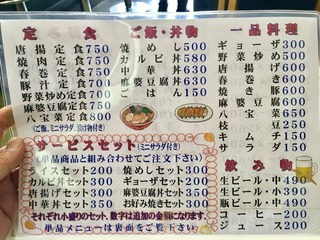 定食
唐揚定食750
焼肉定食750
春巻定食700
豚汁定食700
野菜炒め定食700
麻婆豆腐定食700
八宝菜定食800
(ご飯、ミニサラダ、お漬け物付き)
ご飯・丼物
焼めし500
カルビ丼580
中華丼630
麻婆豆腐丼630
ごはん150
一品料理
ギョーザ300
野菜炒め500
唐揚げ600
春巻き600
焼き豚600
麻婆豆腐500
八宝菜700
枝豆250
キムチ150
サラダ150
サービスセット(ミニサラダ付き)
(単品商品と組み合わせてご注文下さい)
ライスセット200
カルビ丼セット350
唐揚げセット350
中華丼セット350
焼めしセット300
ギョーザセット200
麻婆豆腐丼セット350
お好み焼きセット200
それぞれ小盛りのセット、数字は追加の金額になります。
単品メニューは裏面をご覧下さい
飲み物
生ビール・中490
生ビール・小390
瓶ビール・中490
コーヒー200
ジュース200